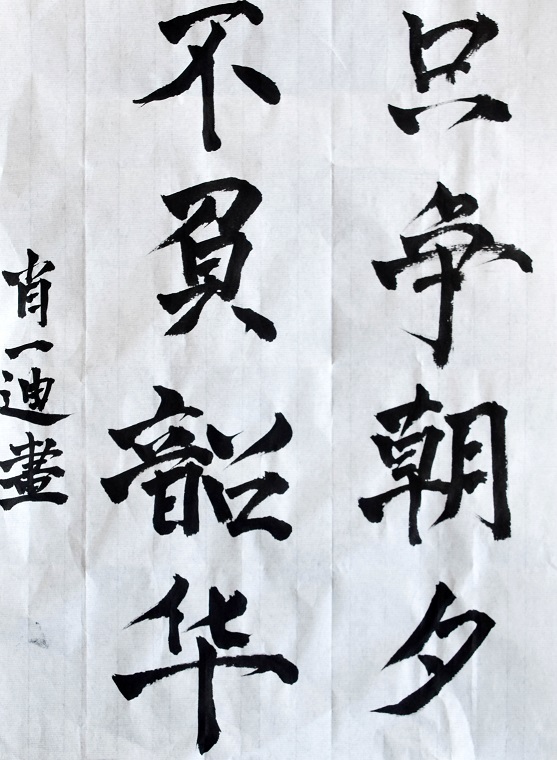 只争朝夕
不负韶华
肖一迪書